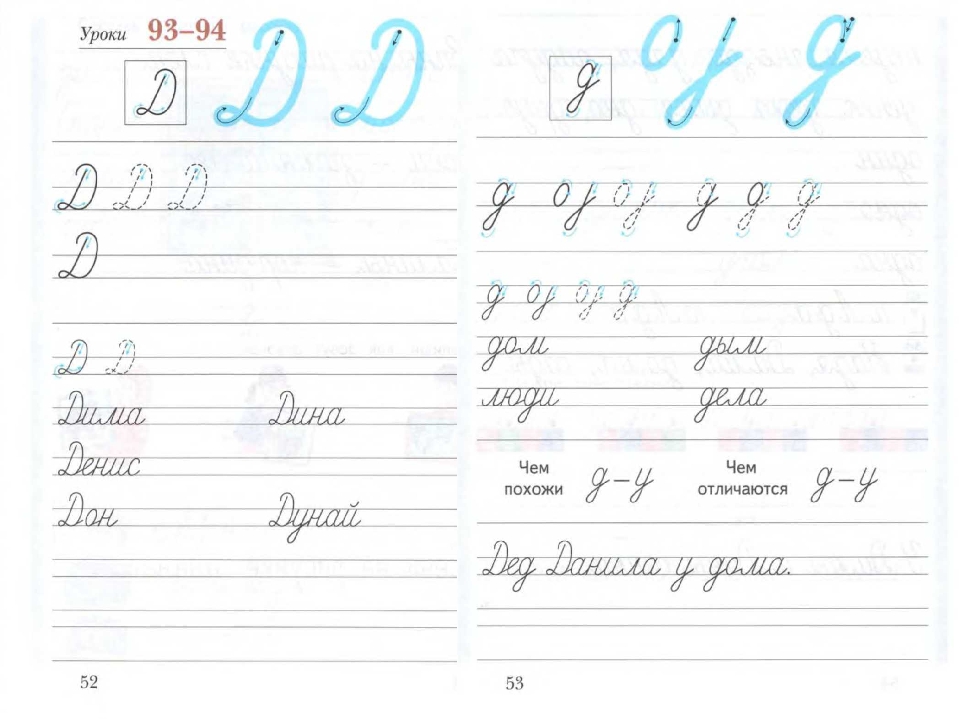 Уроки 93–94
Д Д Д
Д Д Д
Д
Д Д
Дима Дина
Денис
Дон Дунай
52
д д д
д д д д д д
д д д д
дом дым
люди дела
Чем похожи д – у Чем отличаются д – у
Дед Данила у дома.
53